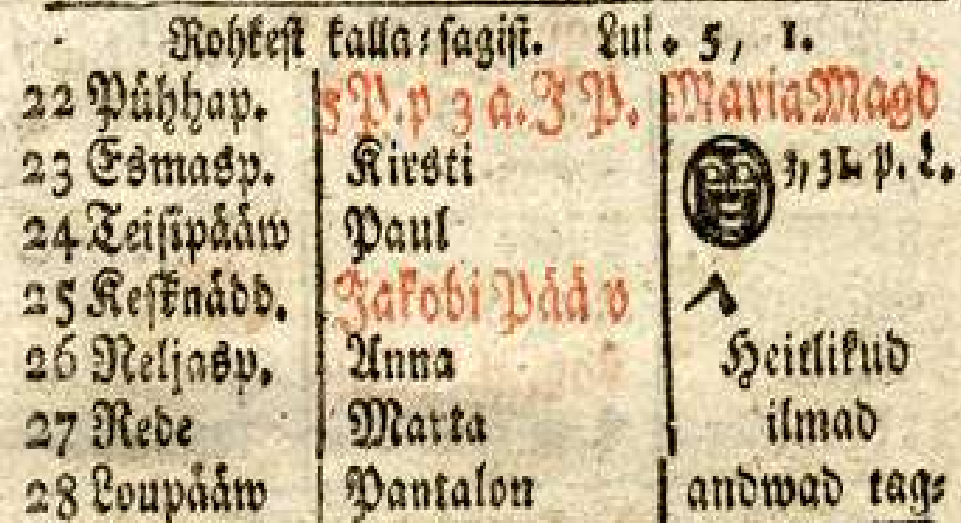 Rohkest kalla⸗sagist. Luk. 5, 1.
22 Pühhap. 5 P. p 3 a. J P. Maria Magd
23 Esmasp. Kirsti 3, 31. p. L.
24 Teisipääw Paul
25 Kesknädd. Jakobi Pääv
26 Neljasp. Anna Heitlikud
27 Rede Marta ilmad
28 Loupääw Pantalon andwad tag⸗